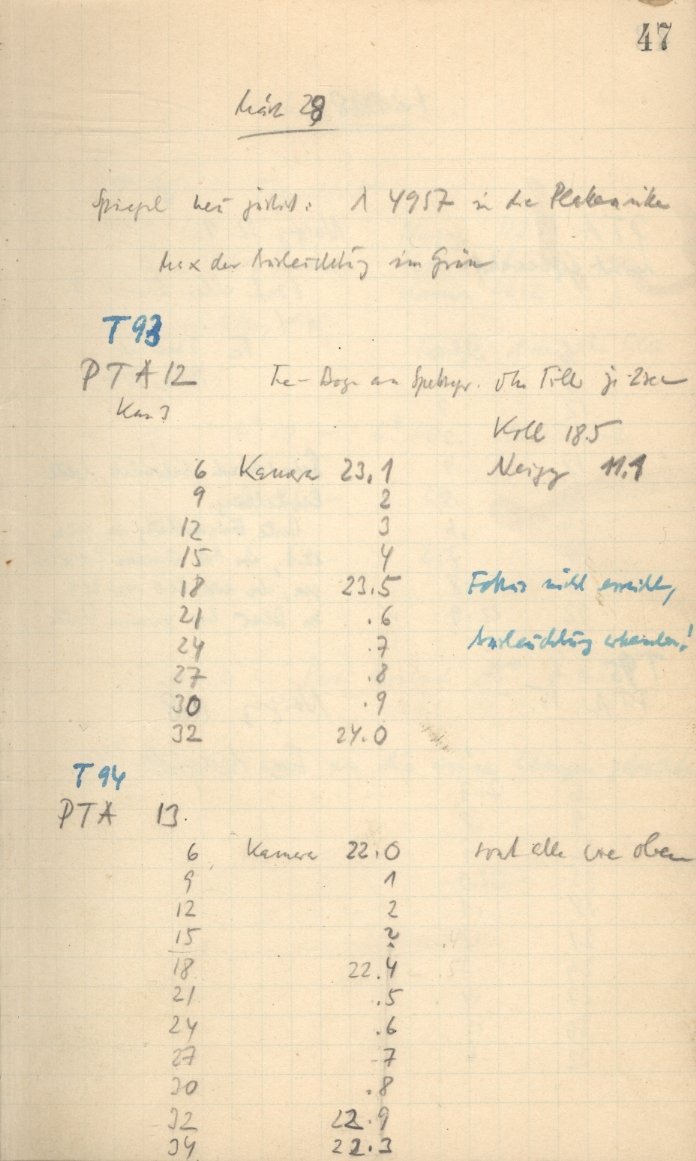 47
März 28
Spiegel neu justiert: λ 4957 in die Plattenmitte
Max der Ausleuchtung im Grün
T 93
PTA 12 Fe-Bogen am Spektrgr. ohn Filter je 2sec
Kas 3
Koll 18.5
6 Kamera 23.1 Neigg 11.1
9 2
12 3
15 4
18 23.5 Fokus nicht erreicht,
21 .6
24 .7 Ausleuchtung !
27 .8
30 .9
32 24.0
T 94
PTA 13.
6 Kamera 22.0 sonst alles wie oben
9 1
12 2
15 ?
18 22.4
21 .5
24 .6
27 7
30 .8
32 22.9
34 22.3